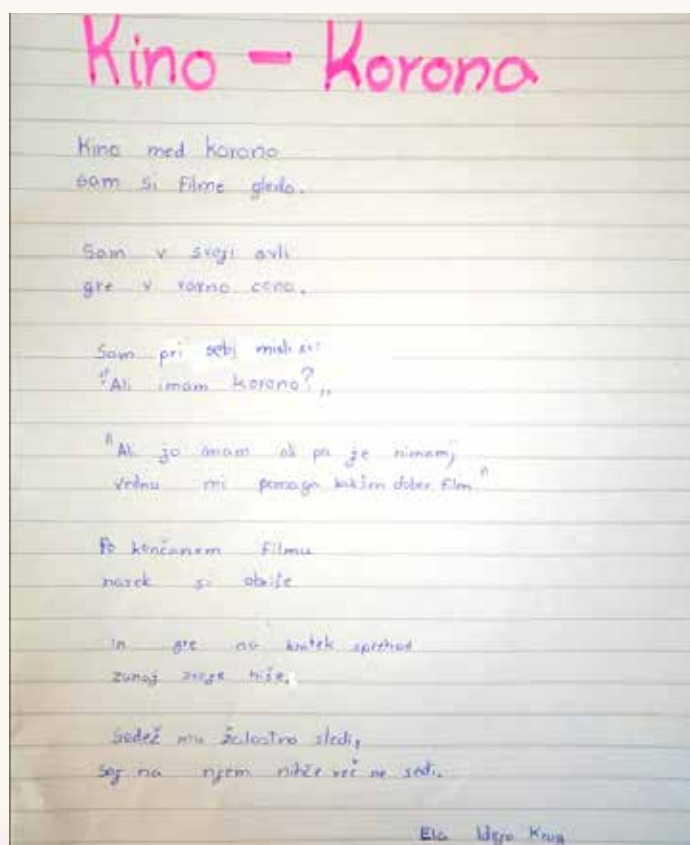 Kino - Korona
Kino med korono
sam si filme gleda.
Sam v svoji avli
gre v ravno ceno.
Sam pri sebi misli si:
"Ali imam korono?„
"Al jo imam ali pa je nimam,
vedno mi pomaga kakšen dober film."
Po končanem filmu
nosek si obriše
in gre na kratek sprehod
zunaj svoje hiše.
Sedež mu žalostno sledi,
saj na njem nihče več ne sedi.
Ela